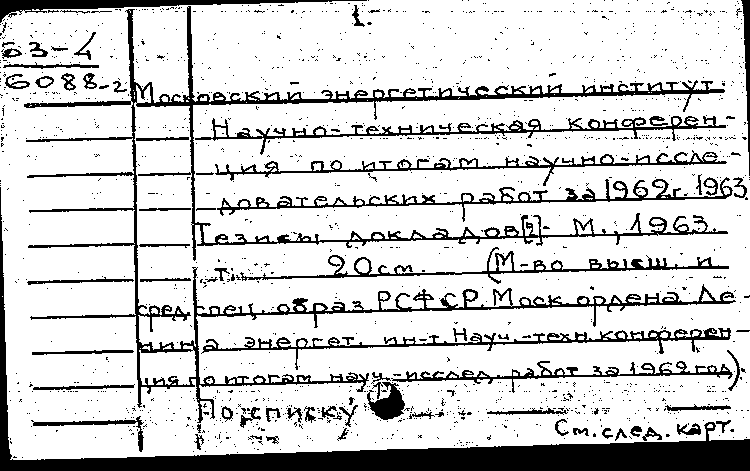 1.
63-4
6088-2
Московский энергетический институт.
Научно-техническая конферен-
ция по итогам научно-иссле-
довательских работ за 1962г. 1963
Тезисы докладов[2]- М., 1963.
т. 20см. (М-во высш. и
сред. спец. образ РСФСР. Моск ордена Ле-
нина энергет. ин-т. Науч.-техн. конферен-
ция по итогам науч.-исслед. работ за 1962 год).
По списку
См. след. карт.